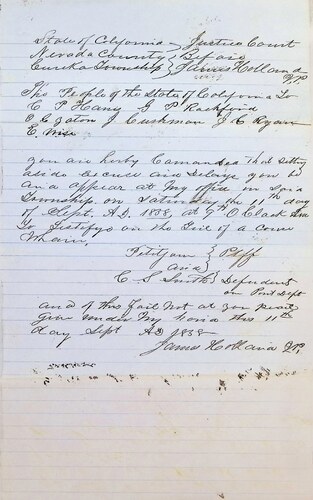 State of Clifornia } Justice Court
Nevada County } Before
Eureka Township } James Holland
J.P.
The People of the State of California To
C P Hany G P Rackford
C C Eaton J Cushman J C Ryan
E. Wise
you air herby Comanded That Setting
aside Excuse and Delaye you be
and appear at My office in Said
Township on Saturday the 11th day
of Sept. A.D. 1858, at 7 O Clock
To Testifye in the of a
Wharin,
} Plff
and
C S Smith } Defendent
on Part Deft
and of this Fail Not at you
Give under My hand this 11th
day Sept AD 1858
James Holland J.P.